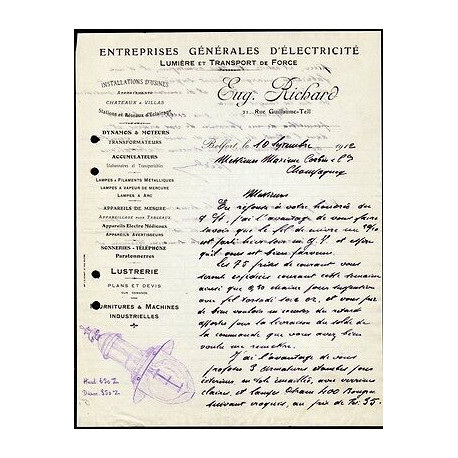 ENTREPRISES GÉNÉRALES D'ÉLECTRICITÉ
LUMIÈRE ET TRANSPORT DE FORCE
INSTALLATIONS D'USINES
APPARTEMENTS
CHATEAUX & VILLAS
Stations et Réseaux d'Eclairage
DYNAMOS & MOTEURS
TRANSFORMATEURS
ACCUMULATEURS
Stationnaires et Transportables
LAMPES A FILAMENTS MÉTALLIQUES
LAMPES A VAPEUR DE MERCURE
LAMPES A ARC
APPAREILS DE MESURE
APPAREILLAGE POUR TABLEAUX
Appareils Electro Médicaux
APPAREILS AVERTISSEURS
SONNERIES - TÉLÉPHONE
Paratonnerres
LUSTRERIE
PLANS ET DEVIS
SUR DEMANDE
FOURNITURES & MACHINES
INDUSTRIELLES
Eug. Richard
21, Rue Guillaume-Tell
Belfort, le 10 Septembre 1912
Messieurs
Champagnole
Messieurs
En réponse à votre honorée du
9 ct, j'ai l'avantage de vous faire
savoir que le fil de cuivre
est parti hier soir en G.V. et
qu'il vous est bien parvenu.
Les 75 prises de courant vous
seront expédiées courant cette semaine
ainsi que 0,50 chaine pour suspension
avec fil et vous prie
de bien vouloir m'excuser du retard
apporté pour la livraison du solde de
la commande que vous avez bien
voulu me remettre.
J'ai l'avantage de vous
proposer 3 armatures étanches pour
extérieur en tôle émaillée, avec verrerie
claire, et lampes 400 Bougies
suivant croquis, au prix de Frs. 35.
Haut 650 m/m
Diam 350 m/m